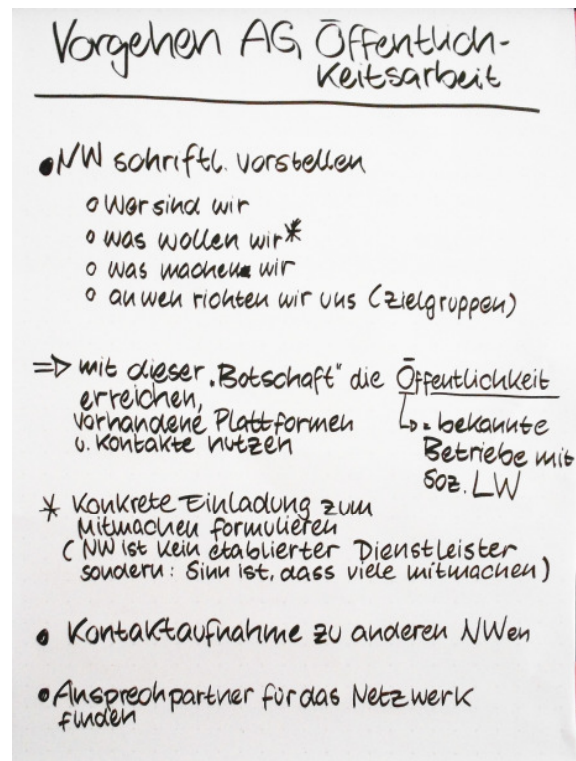 Vorgehen AG Öffentlich-
keitsarbeit
• NW schriftl. vorstellen
o Wer sind wir
o was wollen wir*
o was machen wir
o an wen richten wir uns (Zielgruppen)
=> mit dieser „Botschaft" die Öffentlichkeit
erreichen,
vorhandene Plattformen
u. Kontakte nutzen
↳ = bekannte
Betriebe mit
Soz. LW
* Konkrete Einladung zum
Mitmachen formulieren
( NW ist kein etablierter Dienstleister
sondern: Sinn ist, dass viele mitmachen)
• Kontaktaufnahme zu anderen NWen
• Ansprechpartner für das Netzwerk
finden